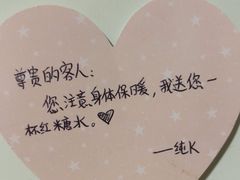 尊贵的客人：
您注意身体保暖，我送您一
杯红糖水。♡
——纯K